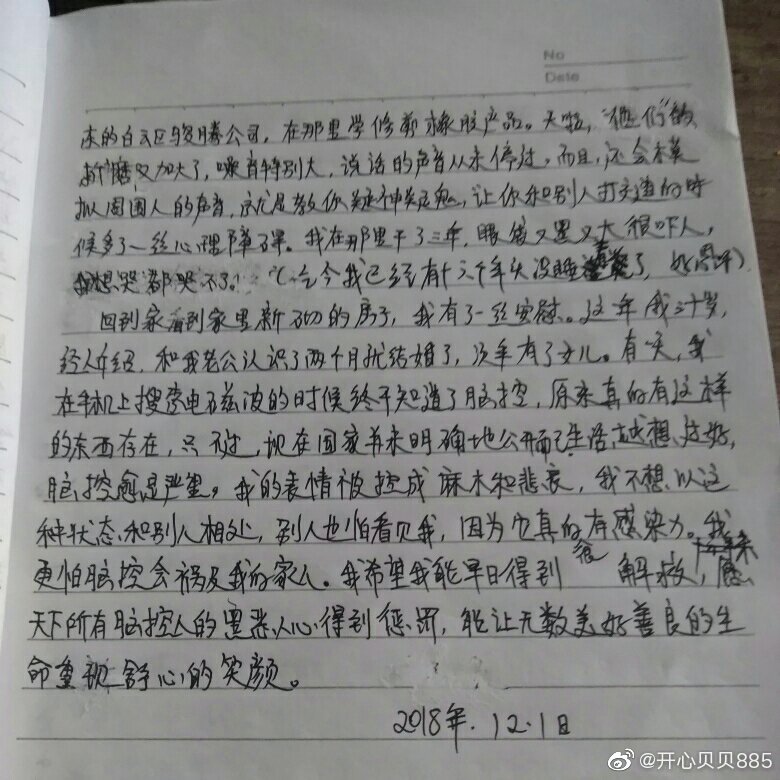 No
Date
东的白云区骏腾公司，在那里学修剪橡胶产品。天啦，"他们"的
折磨又加大了，噪音特别大，说话的声音从未停过，而且，还会模
拟周围人的声音，就是教你疑神疑鬼，让你和别人打交道的时
候多了一丝心理障碍。我在那里干了三年，眼袋又黑又大很吓人，
我想哭都哭不了。（迄今我已经有十六个年头没睡着觉了，好恐怖）
回到家看到家里新砌的房子，我有了一丝安慰。这年我三十岁，
经人介绍，和我老公认识了两个月就结婚了，次年有了女儿。有一天，我
在手机上搜索电磁波的时候终于知道了脑控，原来真的有这样
的东西存在，只不过，现在国家并未明确地公开而已生活越想过好，
脑控愈是严重，我的表情被控成麻木和悲哀，我不想以这
种状态和别人相处，别人也怕看见我，因为它真的有感染力。我
更怕脑控会祸及我的家人。我希望我能早日得到 解救，愿
天下所有脑控人的恶人得到惩罚，能让无数美好善良的生
命重现舒心的笑颜。
2018年.12.1日
@开心贝贝885